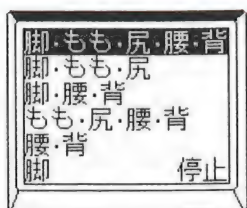 脚・もも・尻・腰・背
脚・もも・尻
脚・腰・背
もも・尻・腰・背
腰・背
脚 停止